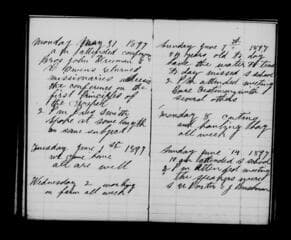 Monday May 31 1897
a M attended conference
Bros John Truman &
D Owens returned
missionaries address
the conference on the
first Principles of
the Gospel
2 P.m
spoke at some length
on same subject
Tuesday June 1st 1897
we came home
all are well
Wednesday 2 working
on farm all week
Sunday June 7th 1897
years old to day
took the water
to day missed s school
2 P M attended meeting
bore testimony with
several others
Monday 8 cutting
and hauling hay
all week
Sunday June 14 1897
10 am attended s school
2 P m attended meeting
the speakers were
Porter & J Bushman